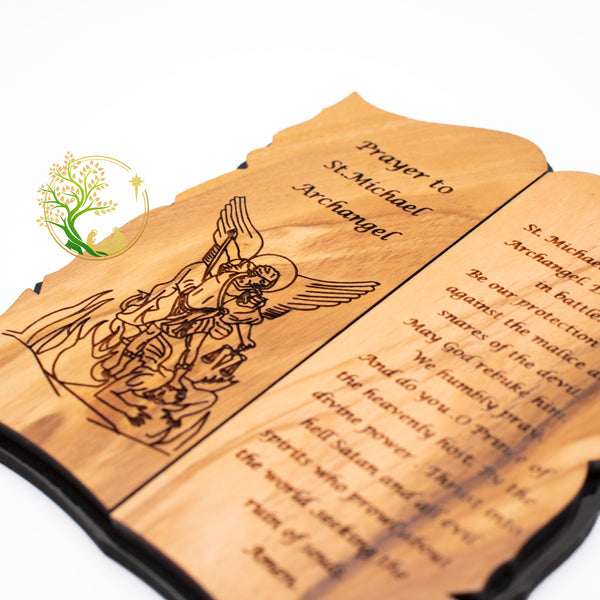 Prayer to
St.Michael
Archangel
St. Michael
Archangel,
in battle
Be our protection
against the malice
snares of the devil
May God rebuke him,
We humbly pray
And do you, O Prince of
the heavenly host, By the
divine power Thrust into
hell Satan and all evil
spirits who prowl about
the world seeking the
ruin of souls
Amen.